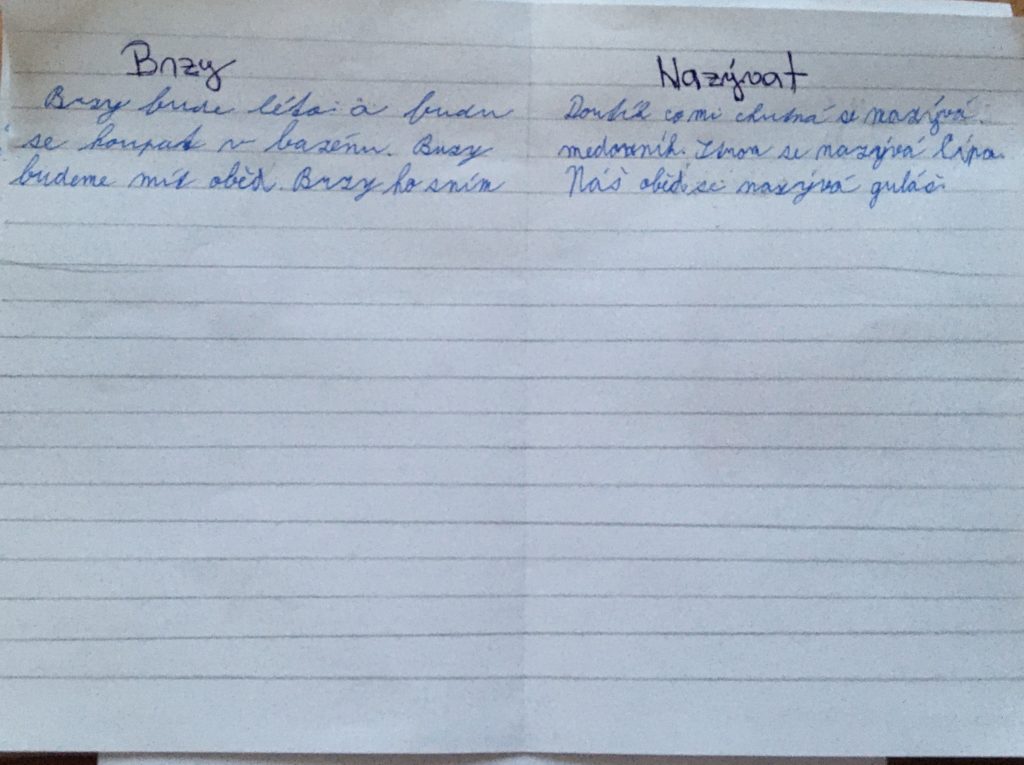 Brzy
Brzy bude léto a budu
se koupat v bazénu. Brzy
budeme mít oběd. Brzy ho sním
Nazývat
co mi chutná se nazývá
medovník. Strom se nazývá lípa.
Náš oběd se nazývá guláš.